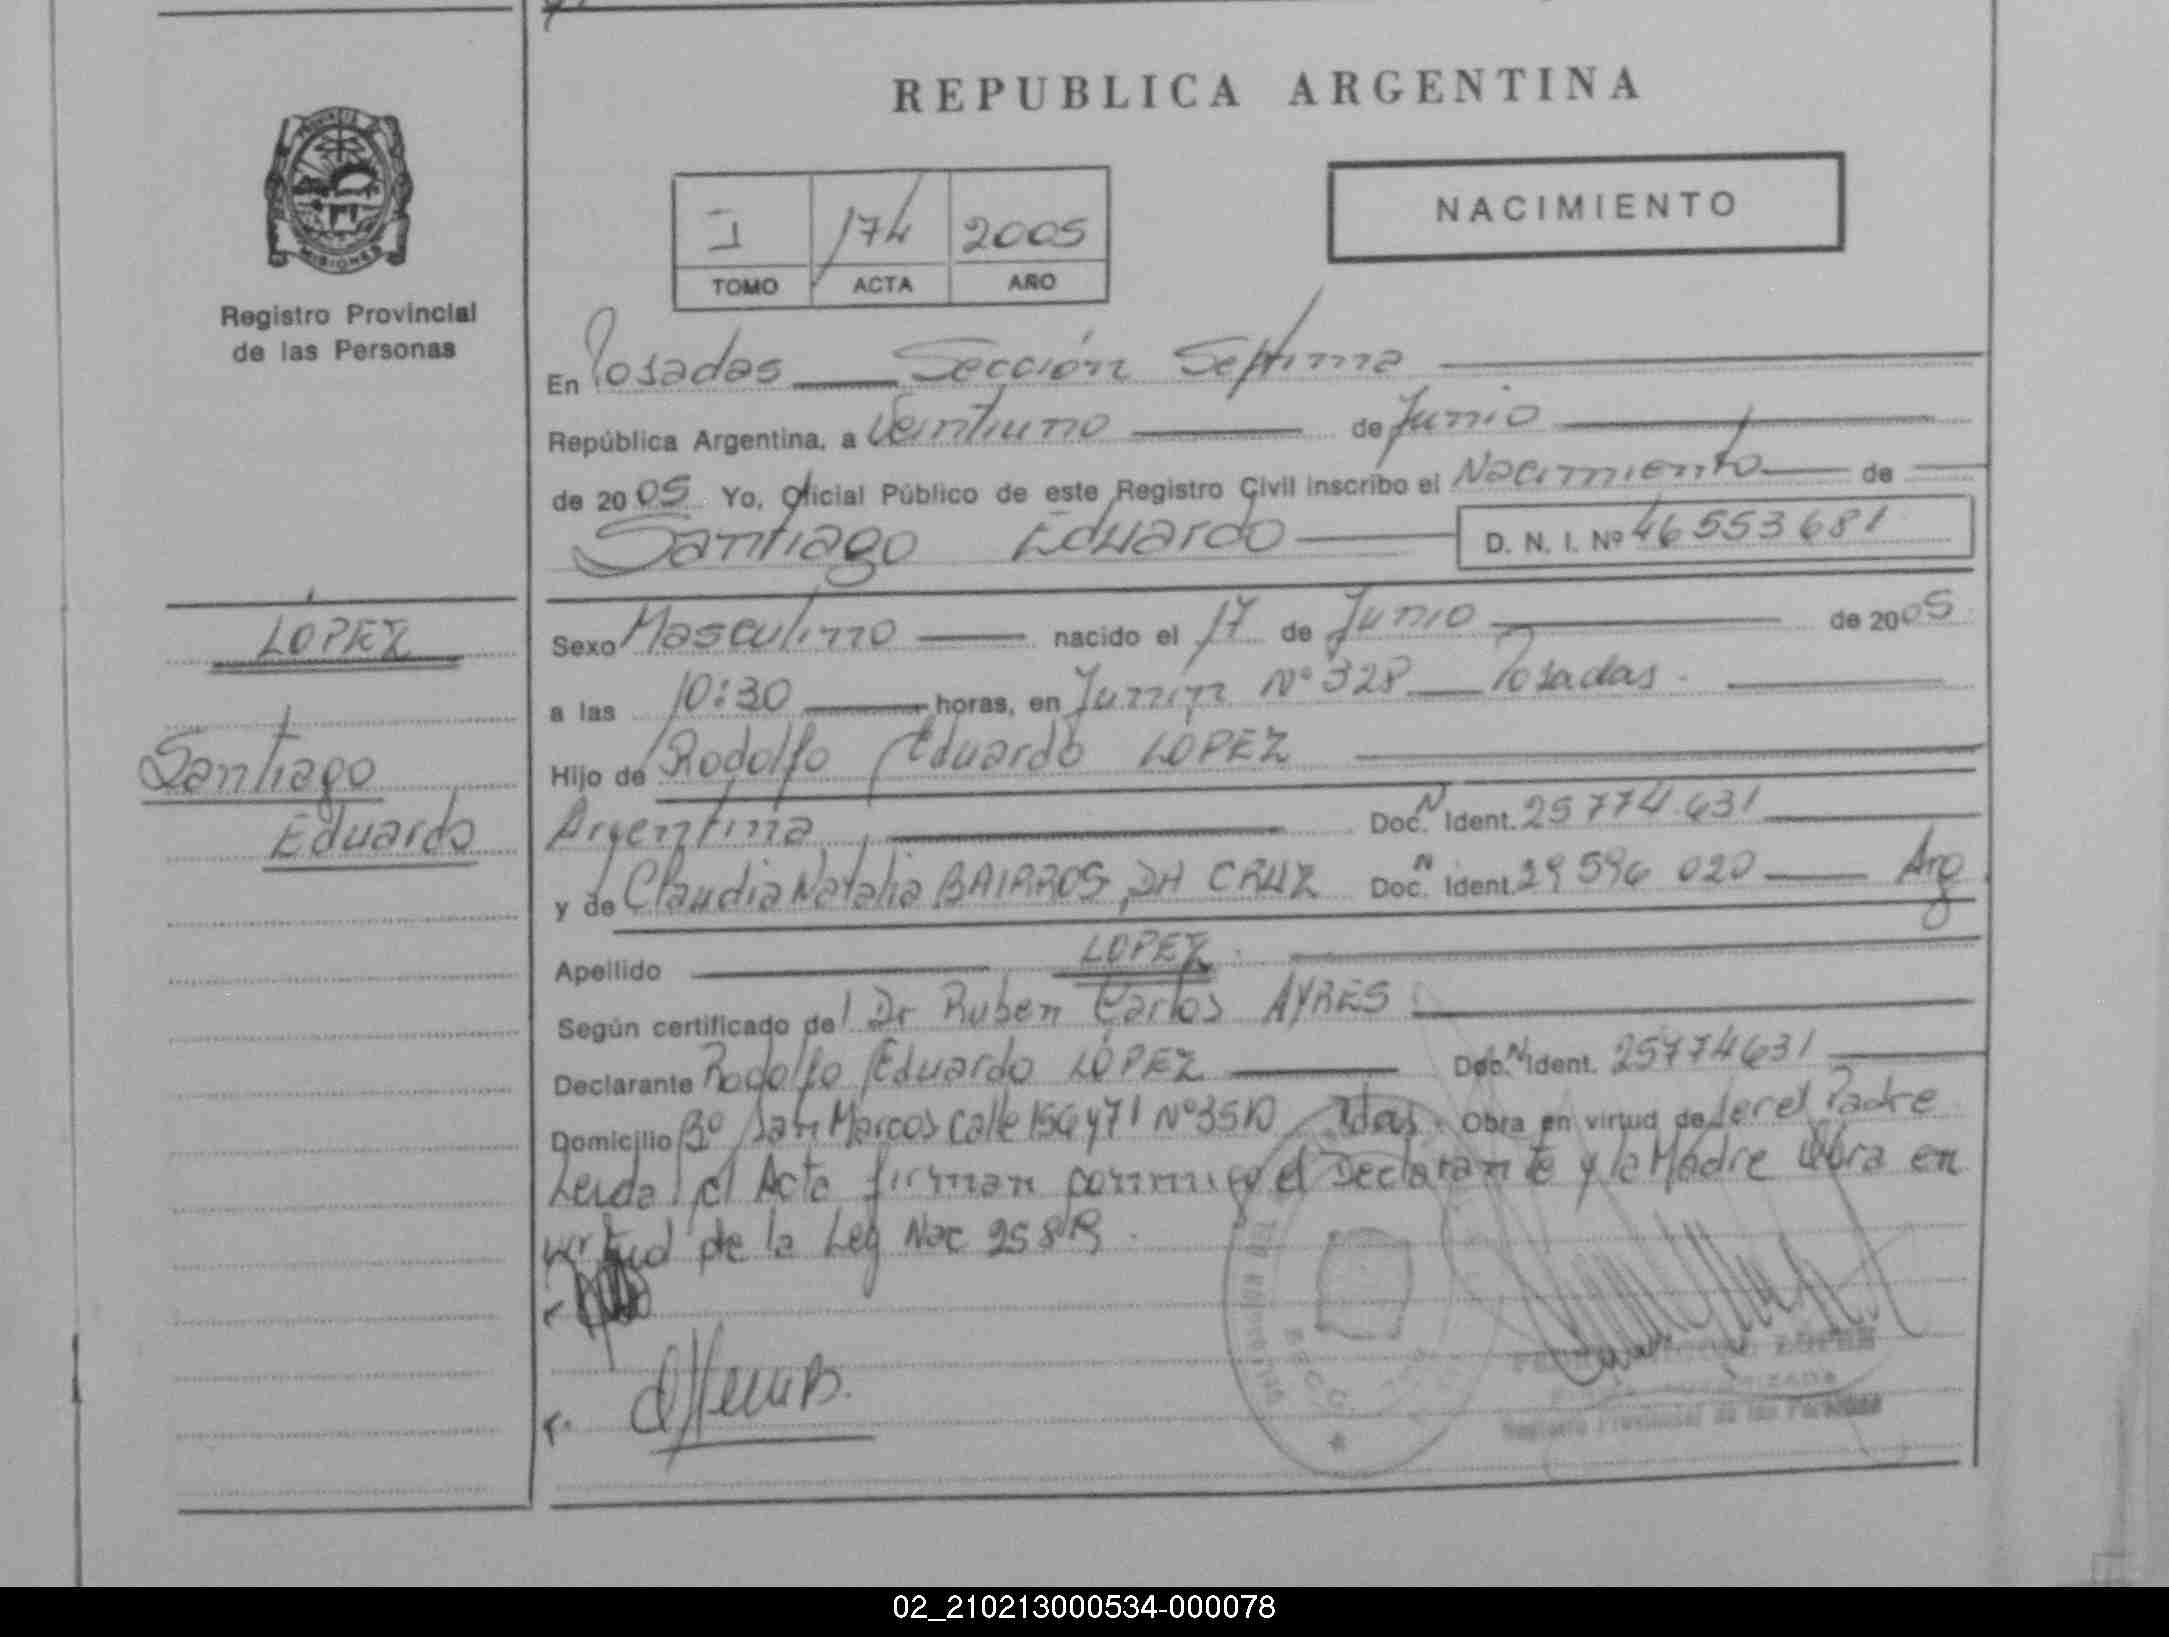 REPUBLICA ARGENTINA
PROVINCIA DE
MISIONES
Registro Provincial
de las Personas
NACIMIENTO
I 174 2005
TOMO ACTA AÑO
En Posadas Sección Septima
República Argentina, a Veintiuno de Junio
de 2005 Yo, Oficial Público de este Registro Civil inscribo el Nacimiento de
Santiago Eduardo D. N. I. Nº 46 553 681
LOPEZ
Santiago
Eduardo
Sexo Masculino nacido el 17 de Junio de 2005
a las 10:30 horas, en Junín Nº 328 Posadas.
Hijo de Rodolfo Eduardo LOPEZ
Argentina Doc. N Ident. 25 774 631
y de Claudia Natalia BAIRROS DA CRUZ Doc. N Ident. 29 596 020 Arg
Apellido LOPEZ
Según certificado del Dr Ruben Carlos AYRES
Declarante Rodolfo Eduardo LÓPEZ Doc. N Ident. 25774631
Domicilio Bº San Marcos Calle 156 y 71 Nº 3510 Pdas. Obra en virtud de ser el Padre
Leida el Acta firman conmigo el Declarante y la Madre Obra en
virtud de la Ley Nac 25819.
LOPEZ
Registro Provincial de las Personas
02_210213000534-000078